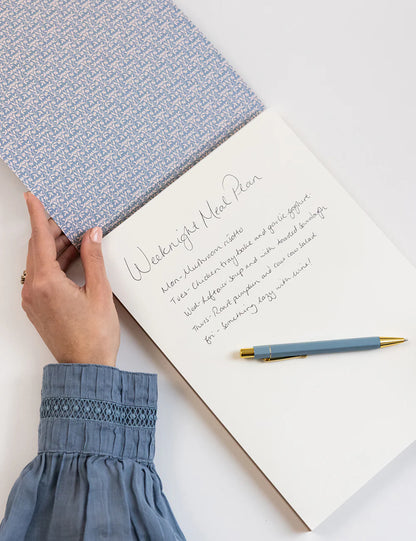 Weeknight Meal Plan
Mon - Mushroom risotto
Tues - Chicken tray bake and garlic
Wed - soup and with toasted sourdough
Thurs - Roast pumpkin and cous cous salad
Fri - Something easy with wine!